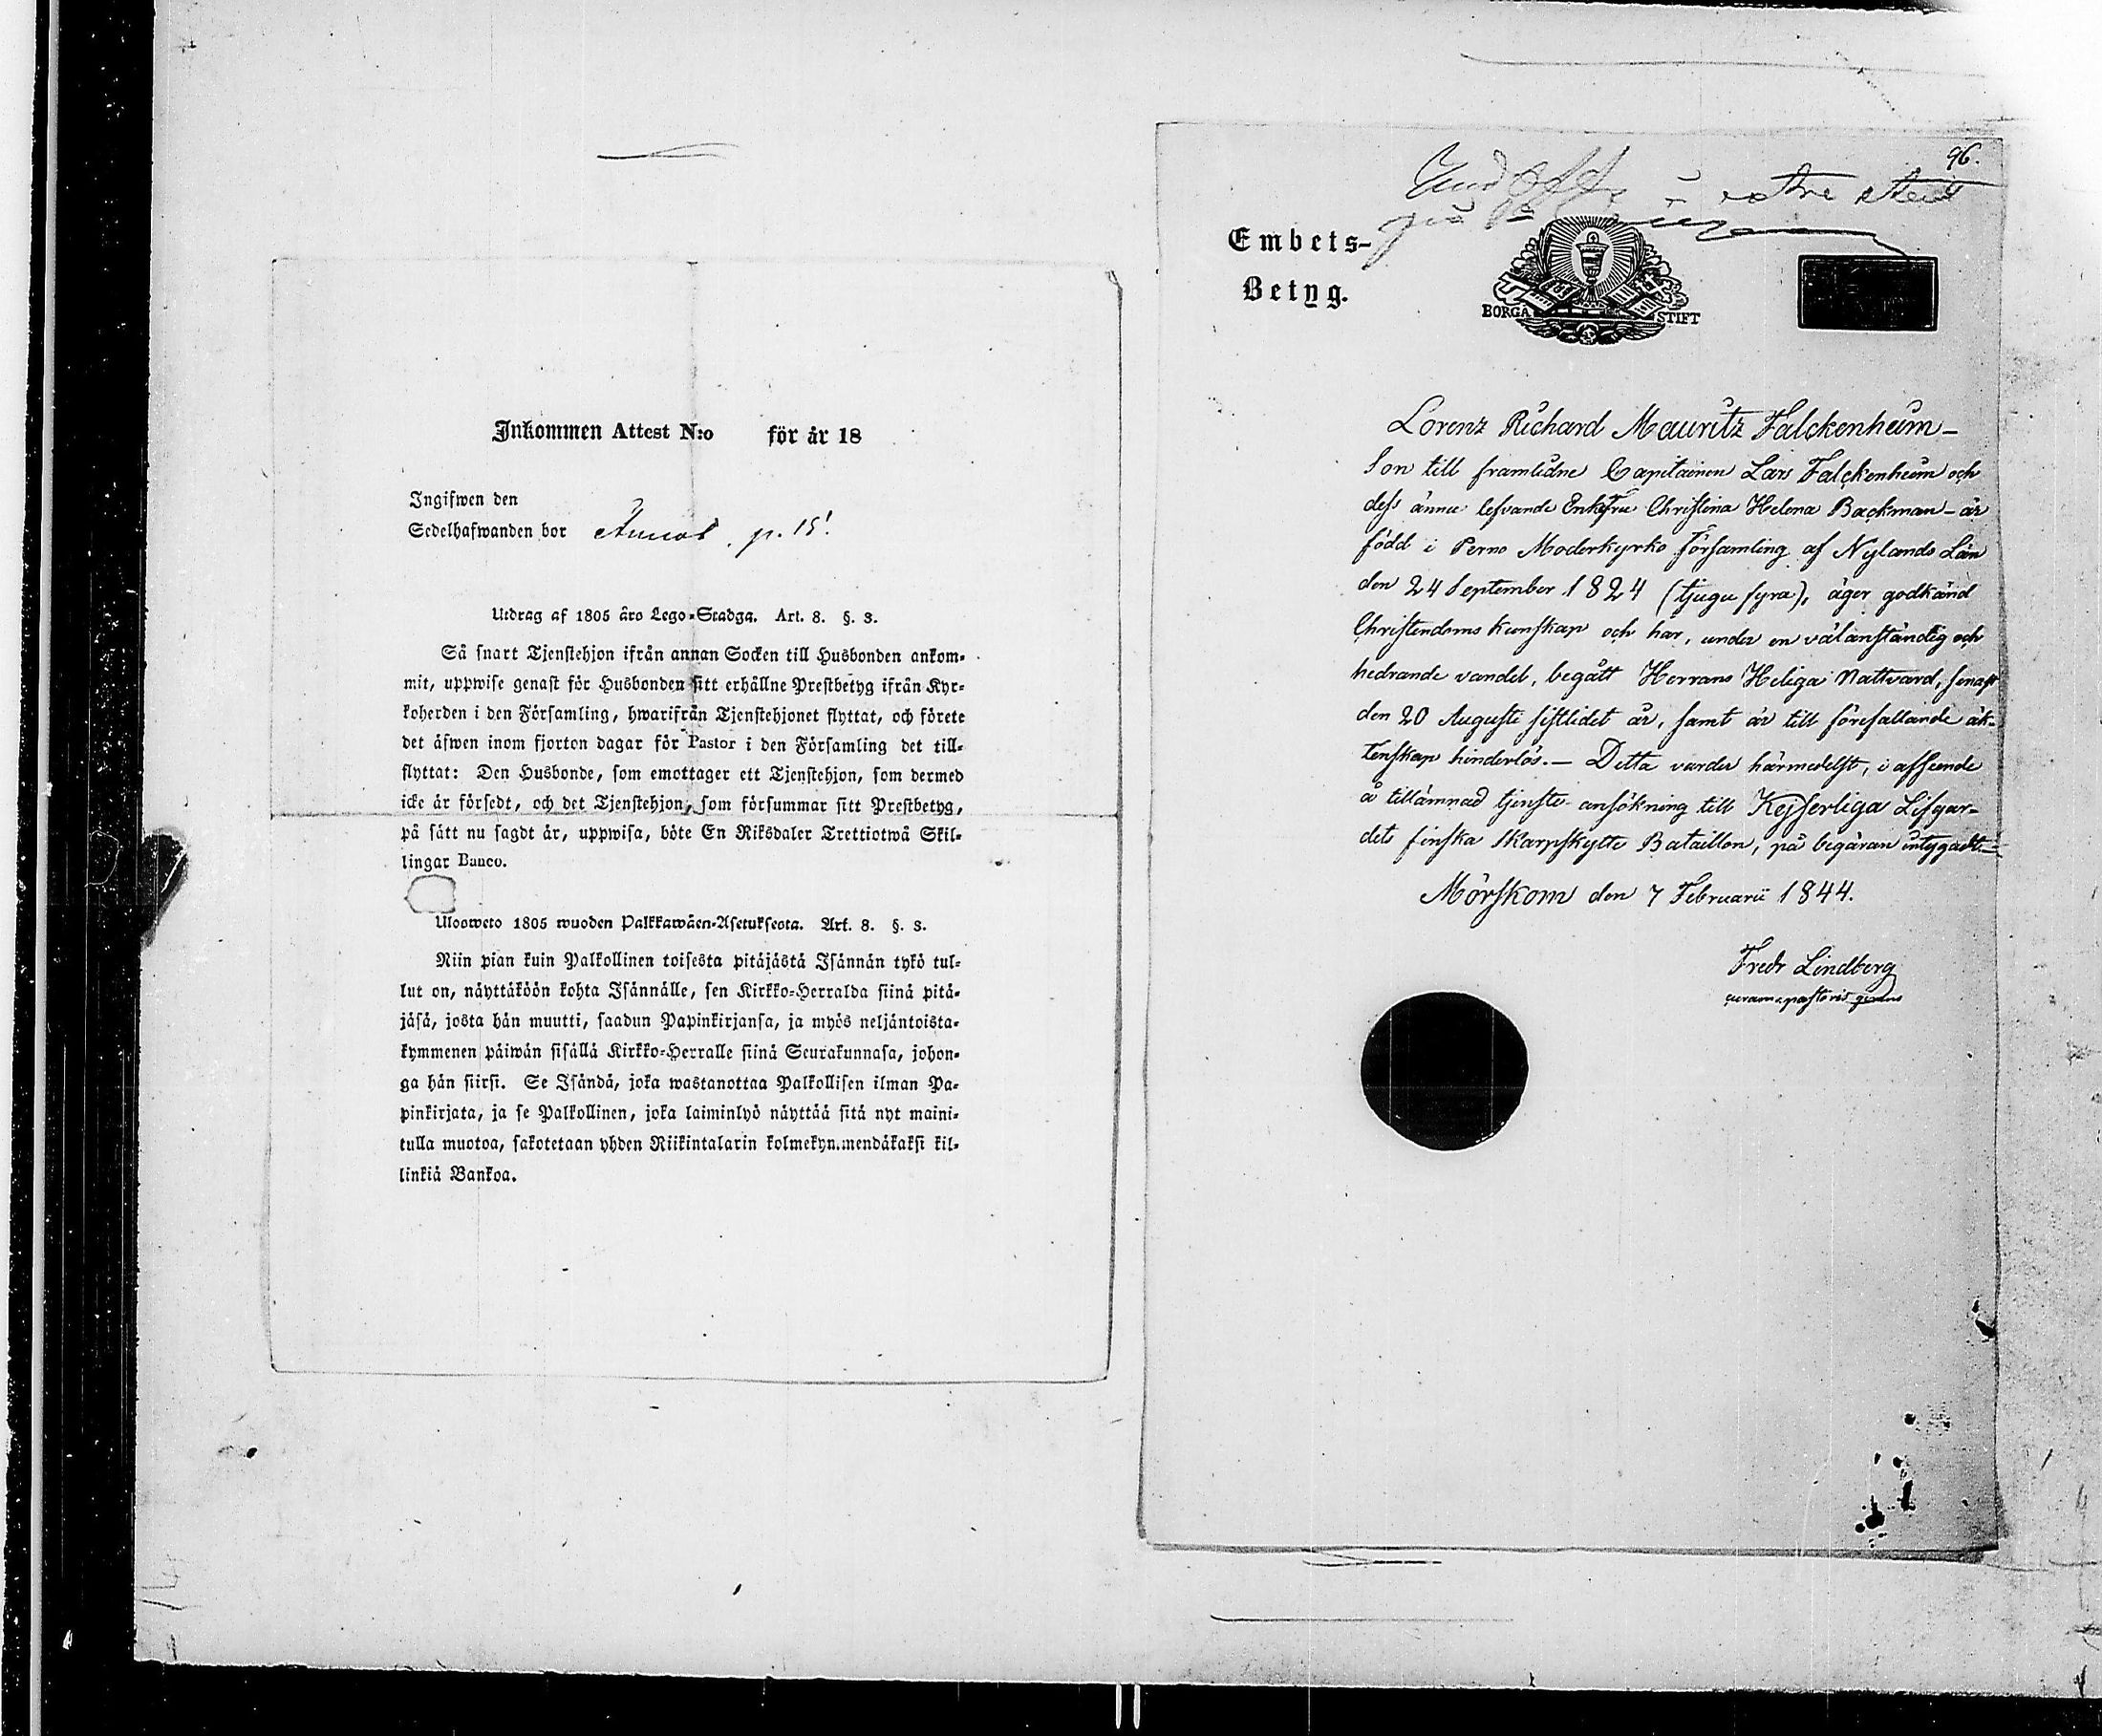 Inkommen Attest N:o för år 18
Ingifwen den
Sedelhafwanden bor p. 15!
Utdrag af 1805 års Lego-Stadga. Art. 8. §. 3.
Så snart Tjenstehjon ifrån annan Socken till Husbonden ankom-
mit, uppwise genast för Husbonden sitt erhållne Prestbetyg ifrån Kyr-
koherden i den Församling, hwarifrån Tjenstehjonet flyttat, och förete
det äfwen inom fjorton dagar för Pastor i den Församling det till-
flyttat: Den Husbonde, som emottager ett Tjenstehjon, som dermed
icke är försedt, och det Tjenstehjon, som försummar sitt Prestbetyg,
på sätt nu sagdt är, uppwisa, böte En Riksdaler Trettiotwå Skil-
lingar Banco.
Uloosweto 1805 wuoden Palkkawäen-Asetuksesta. Art. 8. §. 3.
Niin pian kuin Palkollinen toisesta pitäjästä Isännän tykö tul-
lut on, näyttäköön kohta Isännälle, sen Kirkko-Herralda siinä pitä-
jäsä, josta hän muutti, saadun Papinkirjansa, ja myös neljäntoista-
kymmenen päiwän sisällä Kirkko-Herralle siinä Seurakunnasa, johon-
ga hän siirsi. Se Isändä, joka wastanottaa Palkollisen ilman Pa-
pinkirjata, ja se Palkollinen, joka laiminlyö näyttää sitä nyt maini-
tulla muotoa, sakotetaan yhden Riikintalarin kolmekymmendäkaksi kil-
linkiä Bankoa.
96.
Embets-
Betyg.
BORGÅ STIFT
Lorenz Richard Mauritz Falckenheim -
Son till framlidne Capitainen Lars Falckenheim och
dess ännu lefvande Enkefru Christina Helena Backman - är
född i Perno Moderkyrko församling af Nylands Län
den 24 September 1824 (tjugu fyra), äger godkänd
Christendoms kunskap och har, under en välanständig och
hedrande vandel, begått Herrans Heliga Nattvard, senast
den 20 Augusti sistlidet år, samt är till förefallande äk-
tenskap hinderlös. - Detta varder härmedelst, i afseende
å tillämnad tjenste-ansökning till Kejserliga Lifgar-
dets finska Skarpskytte Bataillon, på begäran intygadt. -
Mörskom den 7 Februarii 1844.
Fredr Lindberg
curam pastoris gerens